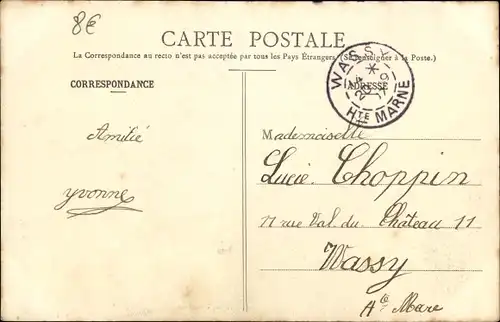 8€
CARTE POSTALE
La Correspondance au recto n'est pas acceptée par tous les Pays Étrangers (Se renseigner à la Poste.)
CORRESPONDANCE
ADRESSE
WASSY
Hte MARNE
Amitié
Yvonne
Mademoiselle
Lucie Choppin
11 rue Val du Château 11
Wassy
Hte Marne